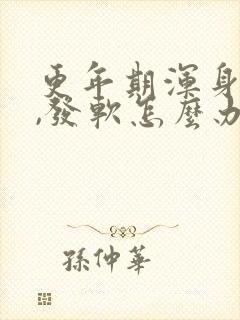 更年期渾身
,發軟怎麼办
孫仲華